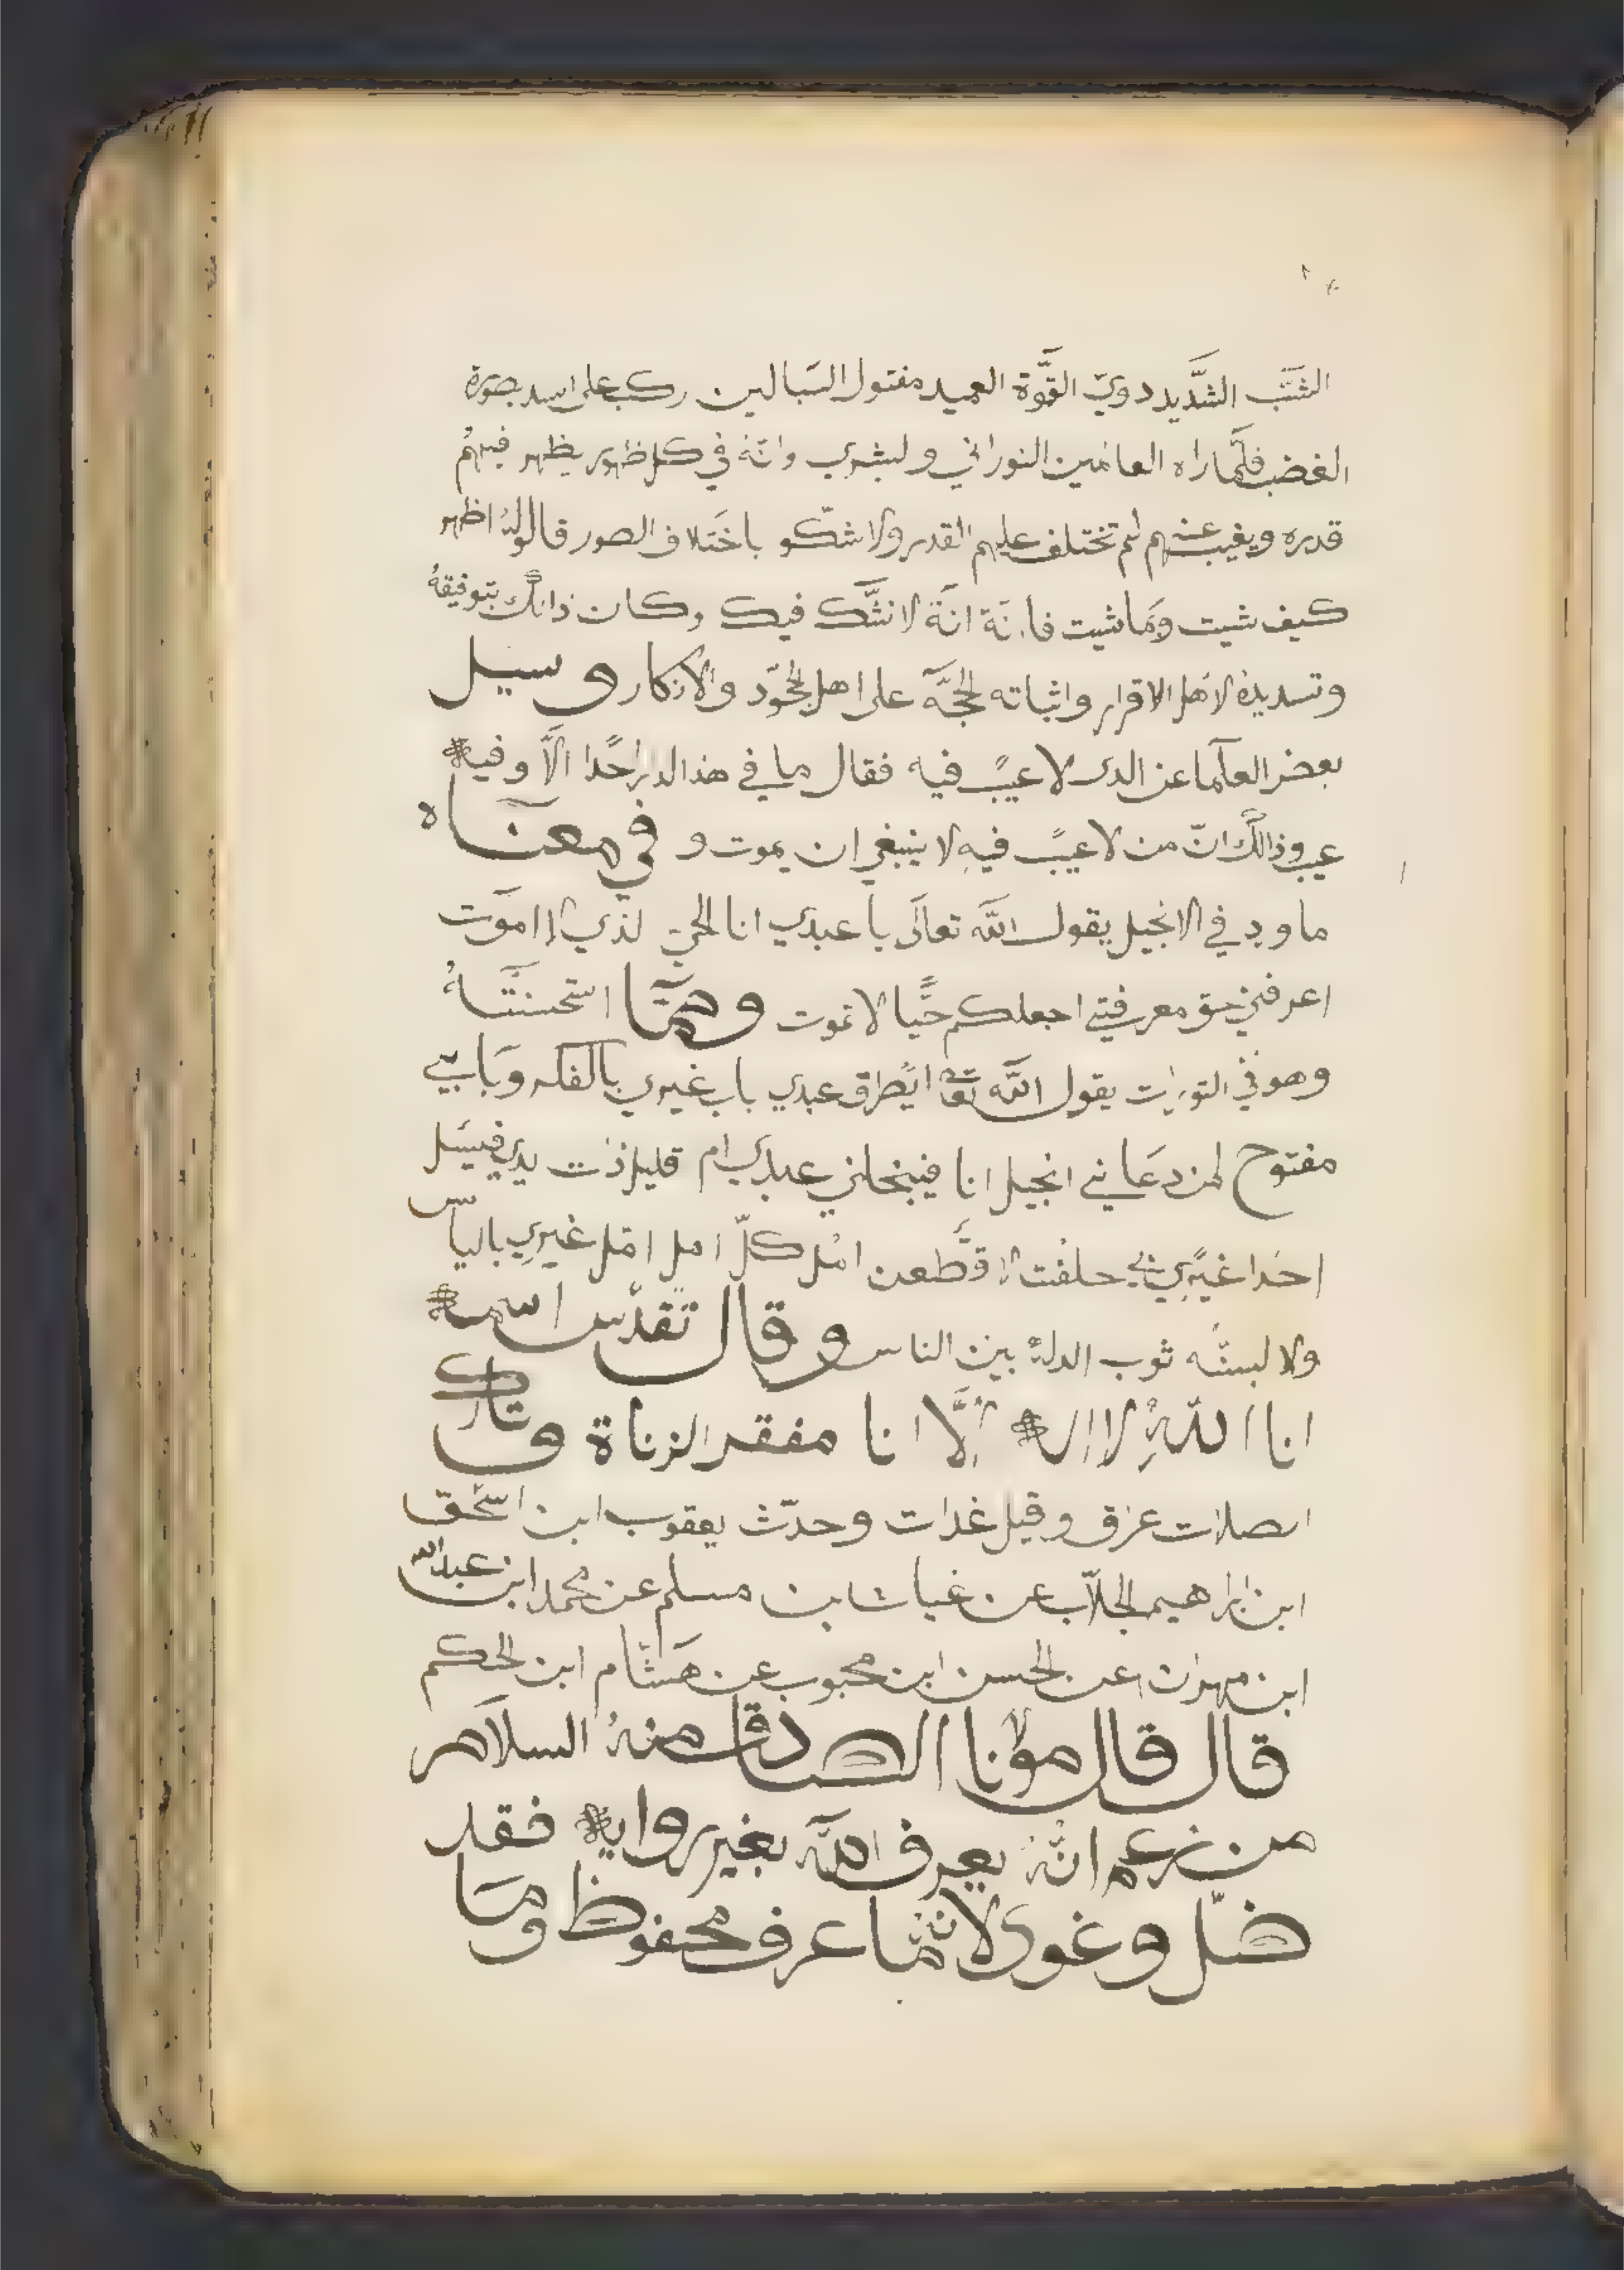 الشَّب الشَّديد دويّ القَّوَّة العميد مفتول السَبالين ركب على اسد بصورة
الغضب فلَّما راه العالمين النوراني ولبشري وانّه في كل ظهور يظهر فيهُم
قدره ويغيب عنهم لم تختلف عليهم القدر ولا شكّو باختلاف الصور قالو لهُ اظهر
كيف شيت وَبما شيت فانَة انَّة لا نشَّك فيك وكان ذالكَّ بتوفيقهُ
وتسديدهُ لاهل الاقرار واثباته لحجَّه على اهل لجحَوّد والانكار وسيل
بعض العلَما عن الدى لا عيبً فيه فقال ما في هذا الدار احًدا الَّا وفيه
عيب وذالكَّ انّ من لا عيبً فيهِ لا ينبغي ان يموت و في معنَاه
ما ورد في الانجيل يقول اللّه تعالَى يا عبدي انا الحيّ لذي لا اموَت
اعرفني حق معرفتي اجعلكم حيًّا لا تموت وممَّا استحسنتَّاهُ
وهو في التورات يقول اللّه تعَا ايَُطرق عبدي باب غيري بالفكر وبَابي
مفتوح لمن دعَاني انجيل انا فيبخلني عبدي ام قليل ذات يدي فيسَل
احَدا غيَري بي حلفت لاقَّطعن امُل كلّ امل امّل غيرِي بالياس
ولا لبستَّه ثوب الدلهُ بين الناس وقال تقدّس اسمه
انا اللّهُ لا اله الَّا انا مفقر الزناة وتارك
الصلات عزق وقيل غدات وحدّث يعقوب ابن اسحٰق
ابن ابراهيم لجلّاب عن غياث ابن مسلم عن محمد ابن عبد اللّه
ابن مهران عن لحسن ابن محبوب عن هَشام ابن لحكم
قال قال مولانا الصادق منهُ السلاَم
من زعم انّهُ يعرف اللّه بغير روايه فقد
ضّل وغوى لانهُ ما عرف محفوظ ومَا